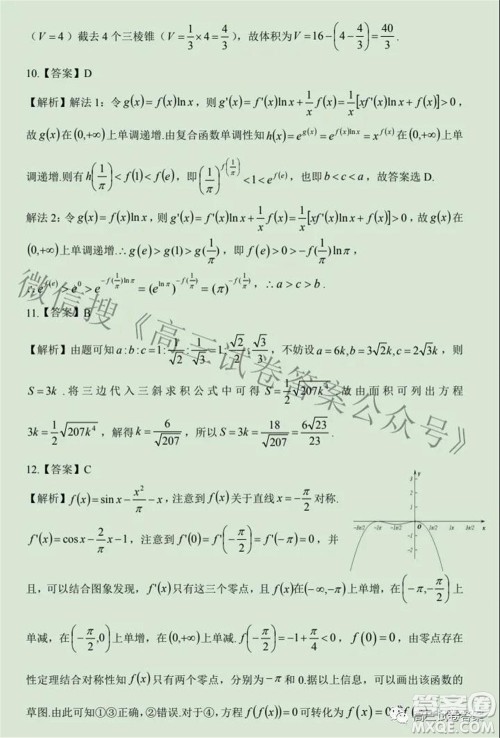 （V=4）截去 4 个三棱锥（V=1/3×4=4/3），故体积为V=16-(4-4/3)=40/3.
10.【答案】D
【解析】解法 1：令g(x)=f(x)ln x，则 g'(x)=f'(x)ln x+1/x f(x)=1/x[xf'(x)ln x+f(x)]>0，
故g(x)在(0,+∞)上单调递增.由复合函数单调性知h(x)=e^{g(x)}=e^{f(x)ln x}=x^{f(x)}在(0,+∞)上单
调递增.则有h(1/π)<f(1)<f(e)，即(1/π)^{f(1/π)}<1<e^{f(e)}，也即b<c<a，故答案选 D.
解法 2：令g(x)=f(x)ln x，则 g'(x)=f'(x)ln x+1/x f(x)=1/x[xf'(x)ln x+f(x)]>0，故g(x)在
(0,+∞)上单调递增.∴g(e)>g(1)>g(1/π)，即 f(e)>0>-f(1/π)lnπ，
∴e^{f(e)}>e^0>e^{-f(1/π)lnπ}=(e^{lnπ})^{-f(1/π)}=(π)^{-f(1/π)}，∴a>c>b.
11.【答案】B
【解析】由题可知a:b:c=1:1/√2:1/√3=1:√2/2:√3/3，不妨设a=6k,b=3√2k,c=2√3k，则
S=3k.将三边代入三斜求积公式中可得S=1/2√207k^4.故由面积可列出方程
3k=1/2√207k^4，解得k=6/√207，所以S=3k=18/√207=6√23/23.
12.【答案】C
【解析】f(x)=sin x-x²/π-x，注意到f(x)关于直线x=-π/2对称.
f'(x)=cos x-2/π x-1，注意到f'(0)=f'(-π/2)=f'(-π)=0，并
且，可以结合图象发现，f'(x)只有这三个零点，且f(x)在(-∞,-π)上单增，在(-π,-π/2)上
单减，在(-π/2,0)上单增，在(0,+∞)上单减.f(-π/2)=-1+π/4<0，f(0)=0，由零点存在
性定理结合对称性知f(x)只有两个零点，分别为-π和 0.据以上信息，可以画出该函数的
草图.由此可知①③正确，②错误.对于④，方程f(f(x))=0可转化为f(x)=0
微信搜《高三试卷答案公众号》
高三试卷答案